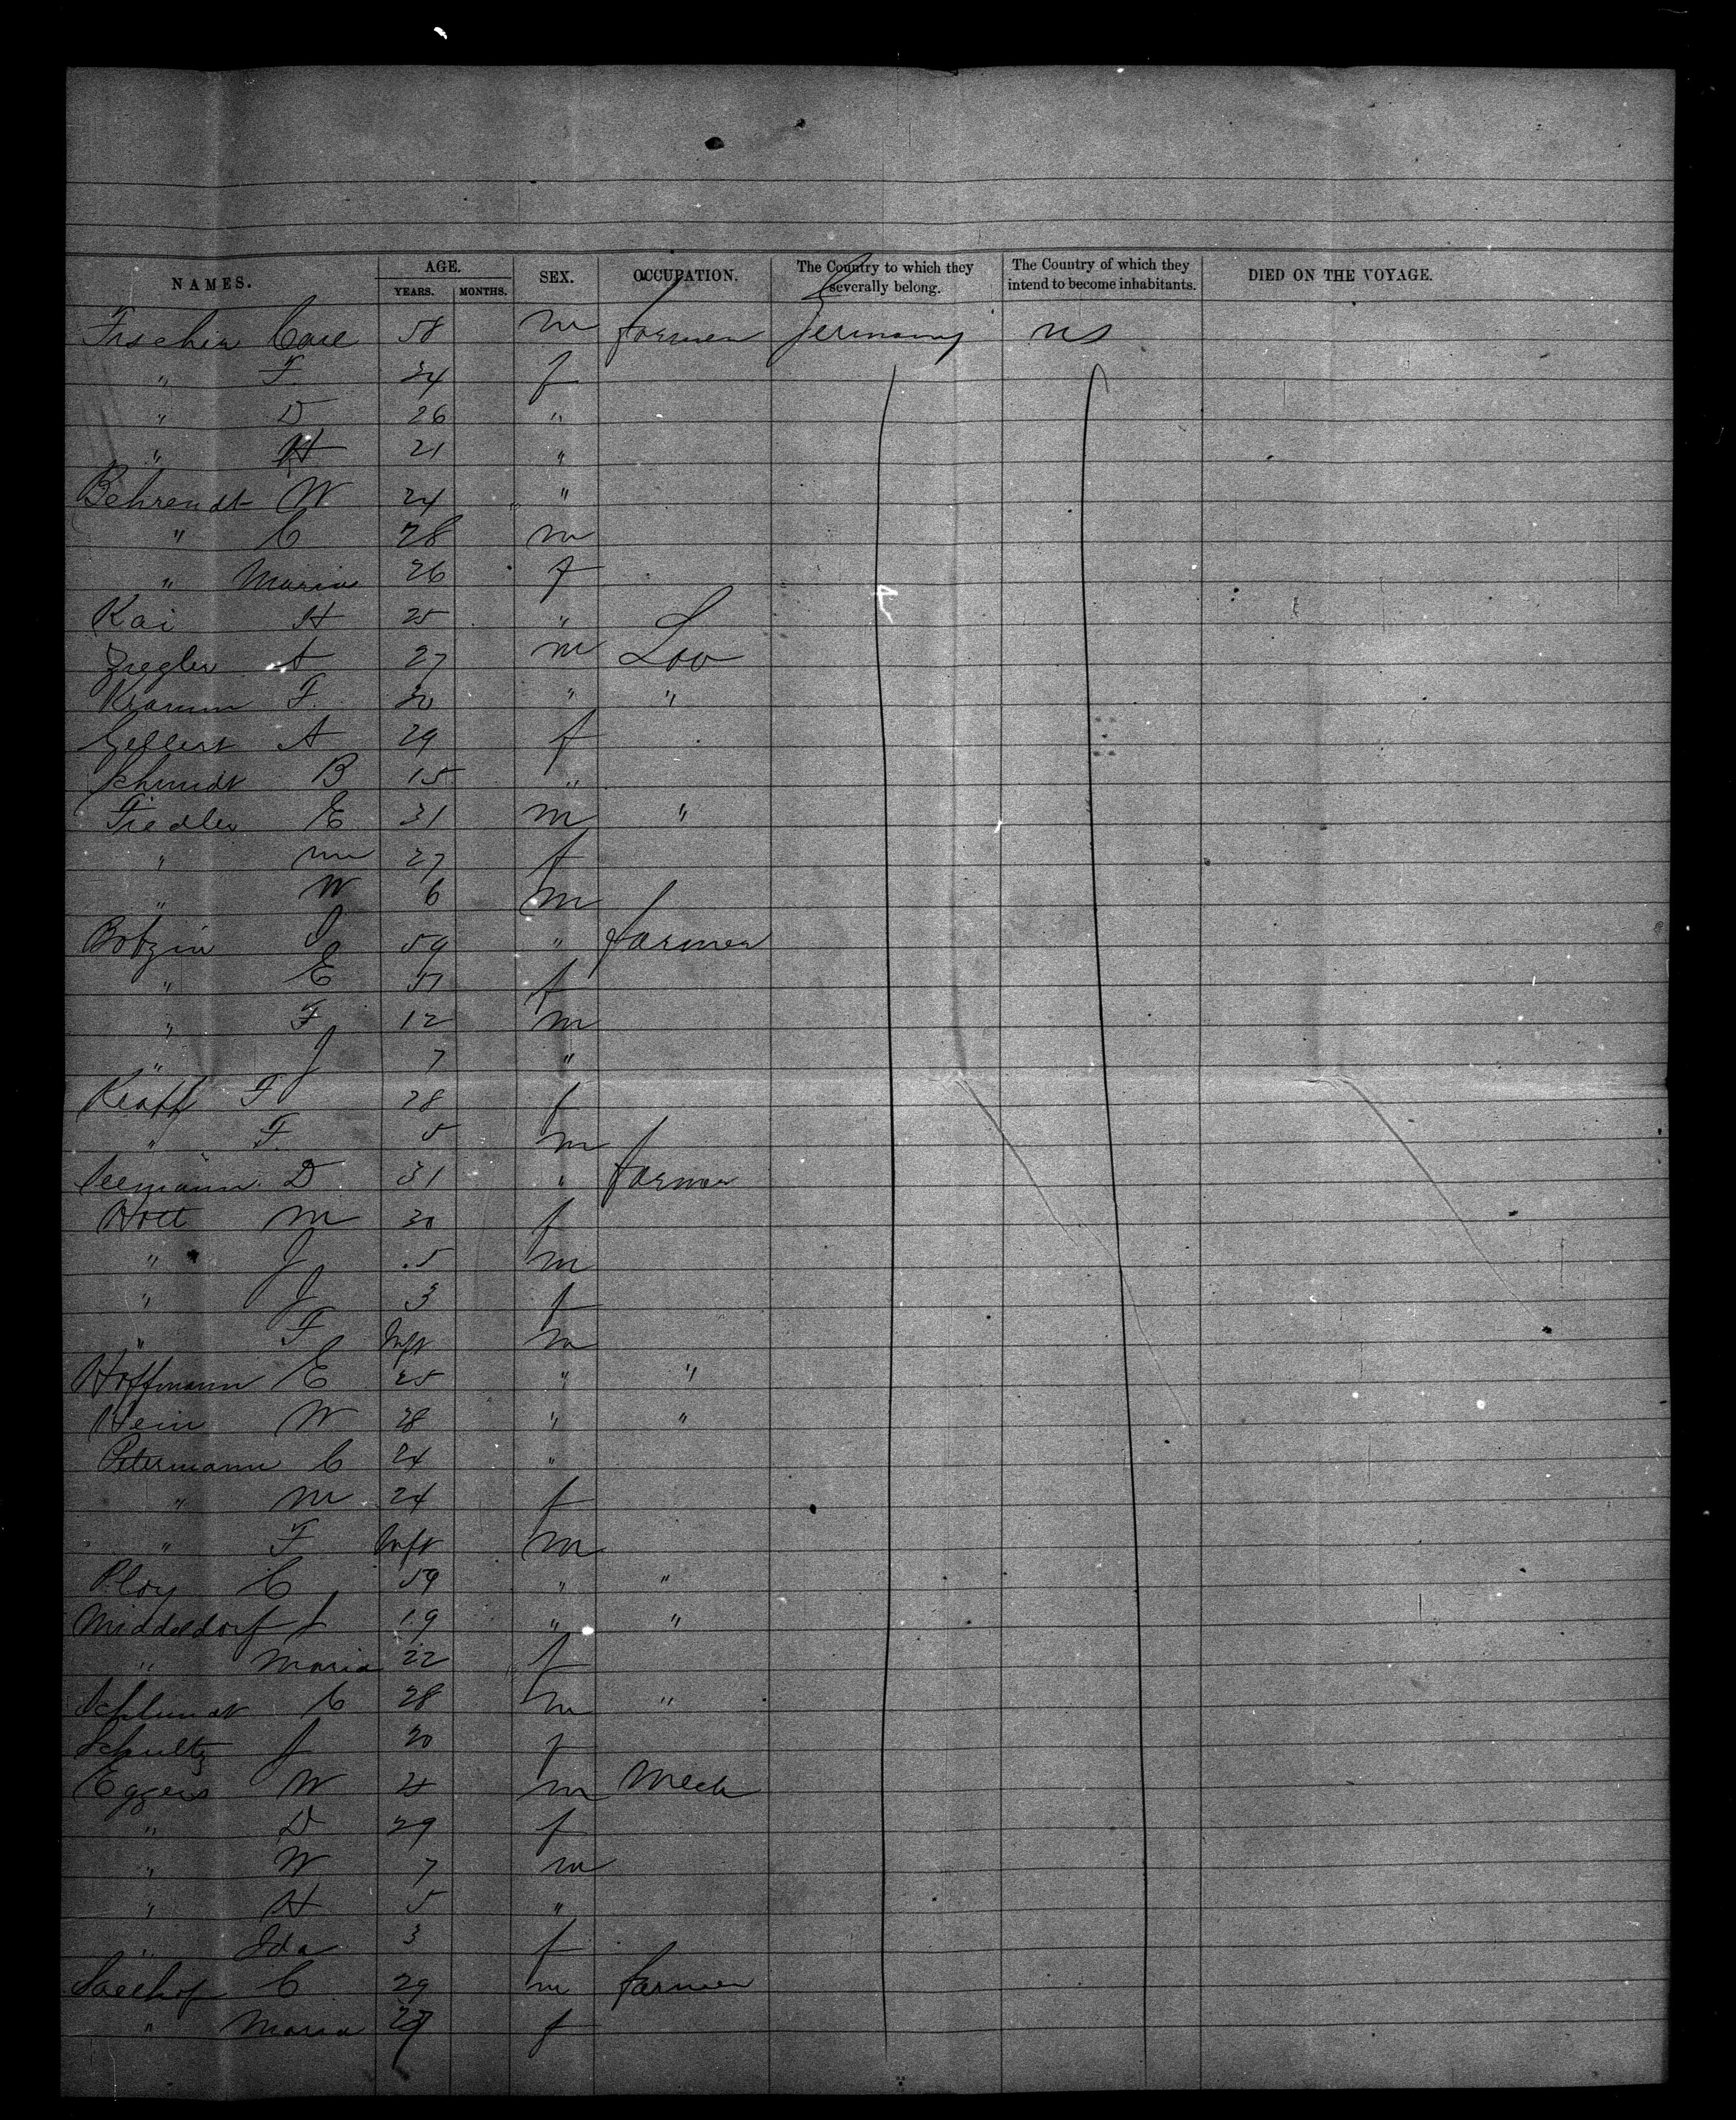 NAMES. AGE. YEARS. MONTHS. SEX. OCCUPATION. The Country to which they severally belong. The Country of which they intend to become inhabitants. DIED ON THE VOYAGE.
Fischer Carl 58 m farmer Germany us
" F. 34 f
" D 26 "
" H 21 "
Behrendt W 24 "
" C 28 m
" Maria 26 f
Kai H 25 "
Ziegler A 27 m Lab
Kramm F. 30 " "
Gellert A 29 f
Schmidt B 15 "
Fiedler E 31 m "
" m 27 f
" W 6 m
Bobzin J 59 " farmer
" E 57 f
" F 12 m
" J 7 "
Krafft F 28 f
" F. 5 m
Seemann D 31 " farmer
Holtt m 30 f
" J 5 m
" J 3 f
" F Inft m
Hoffmann E 25 " "
Hein W 28 " "
Petermann C 24 "
" m 24 f
" F Inft m
Ploy C 59 " "
Middeldorf J 19 " "
" Maria 22 f
C 28 m "
Schultz J 20 f
Eggers W m Mech
" D 29 f
" W 7 m
" H 5 "
" Ida 3 f
C 29 m farmer
" Maria f